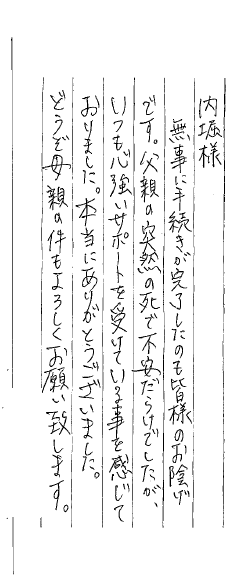 内堀様
無事に手続きが完了したのも皆様のお陰
です。父親の突然の死で不安だらけでしたが、
いつも心強いサポートを受けている事を感じて
おりました。本当にありがとうございました。
どうぞ母親の件もよろしくお願い致します。